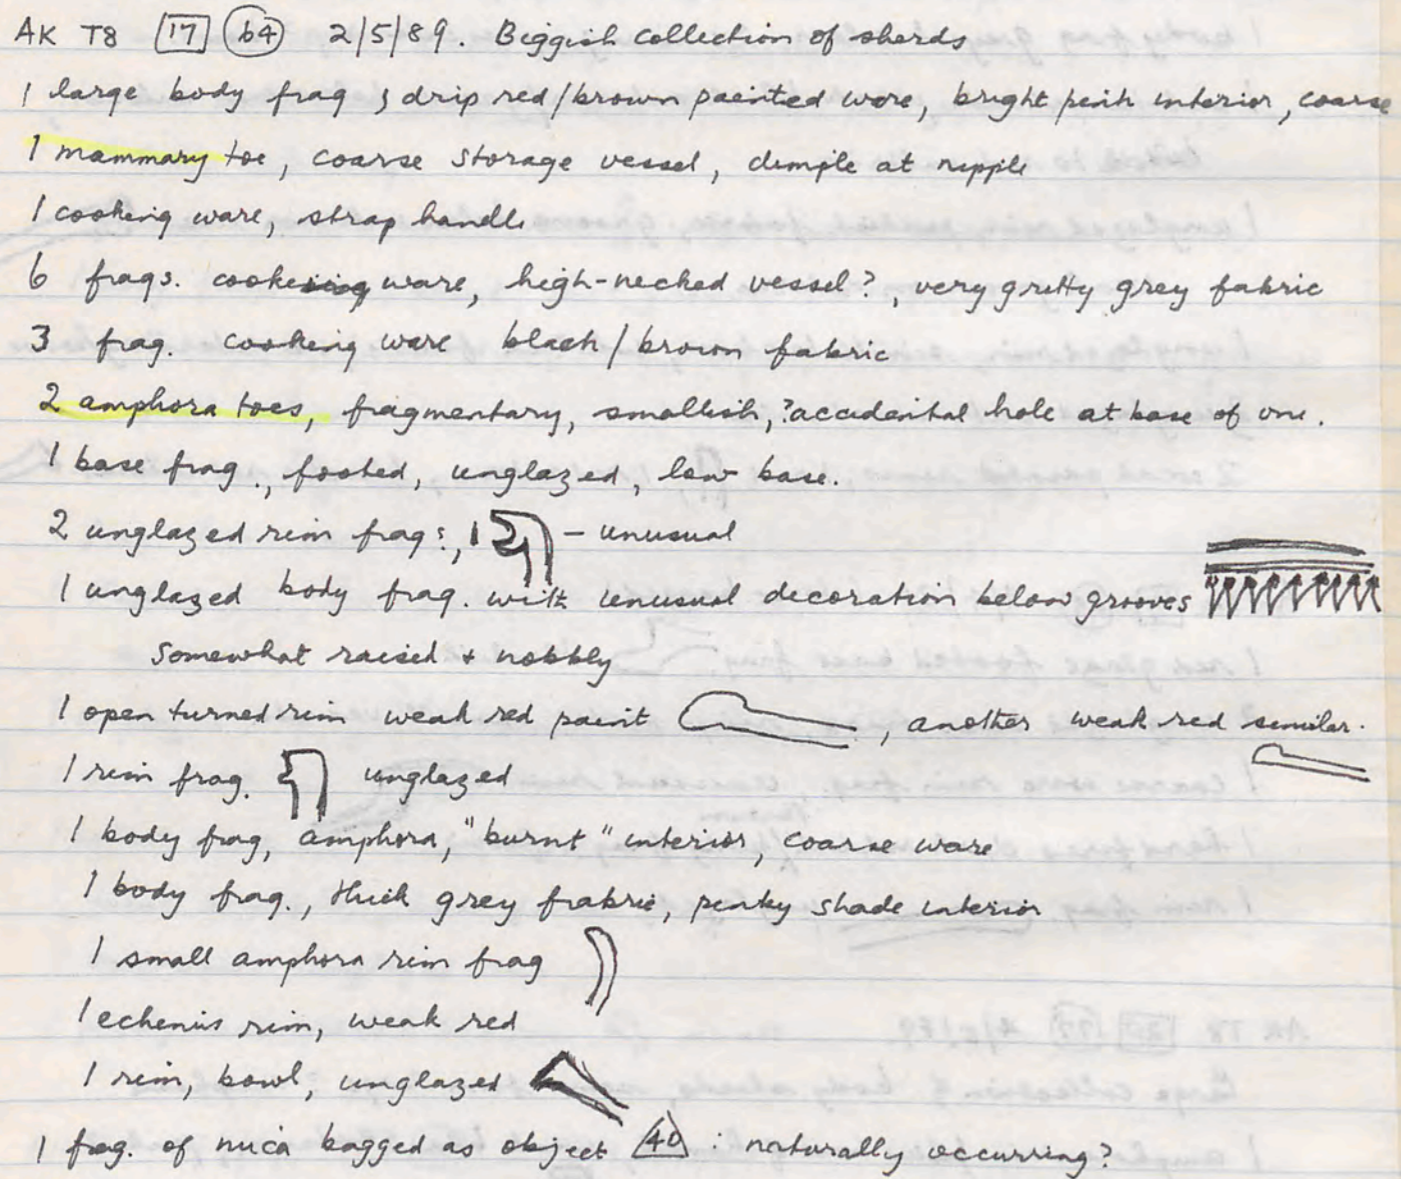 AK T8 17 64 2/5/89. Biggish collection of sherds
1 large body frag; drip red/brown painted ware, bright pink interior, coarse
1 mammary toe, coarse storage vessel, dimple at nipple
1 cooking ware, strap handle
6 frags. cooking ware, high-necked vessel?, very gritty grey fabric
3 frag. cooking ware black/brown fabric
2 amphora toes, fragmentary, smallish, ?accidental hole at base of one.
1 base frag., footed, unglazed, low base.
2 unglazed rim frags, 1 – unusual
1 unglazed body frag. with unusual decoration below grooves
somewhat raised + nobbly
1 open turned rim weak red paint , another weak red similar.
1 rim frag. unglazed
1 body frag, amphora, "burnt" interior, coarse ware
1 body frag., thick grey frabric, pinky shade interior
1 small amphora rim frag
1 echinus rim, weak red
1 rim, bowl, unglazed
1 frag. of mica bagged as object 40 : naturally occurring?